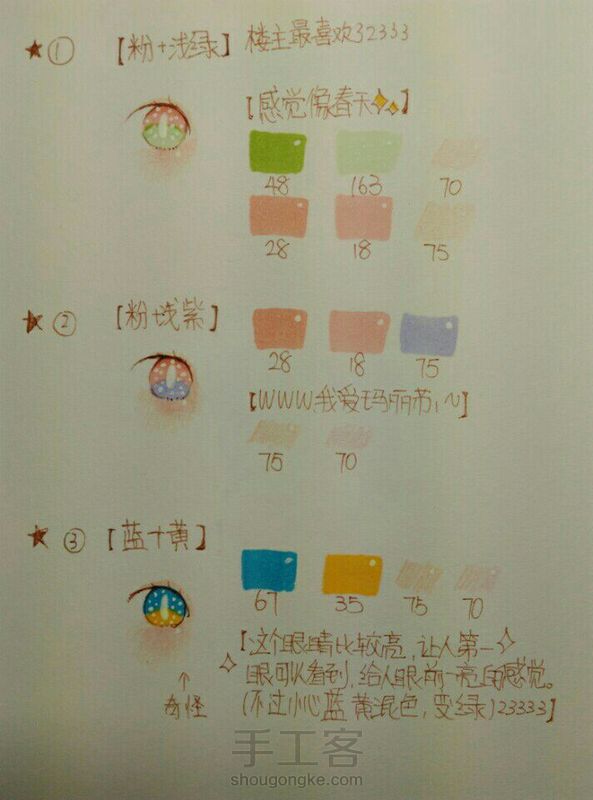 ★① 【粉+浅绿】 楼主最喜欢32333
【感觉像春天】
48 163 70
28 18 75
★② 【粉+浅紫】
28 18 75
【WWW我爱玛丽苏,~】
75 70
★③ 【蓝+黄】
67 35 75 70
【这个眼睛比较亮,让人第一
眼可以看到,给人眼前一亮的感觉。
(不过小心蓝黄混色,变绿)23333】
↑
奇怪
手工客
shougongke.com